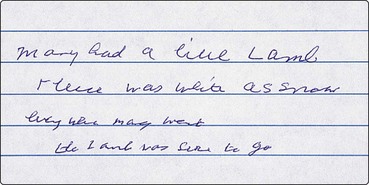 Mary had a little Lamb
Fleece was white as snow
Every where mary went
the Lamb was sure to go